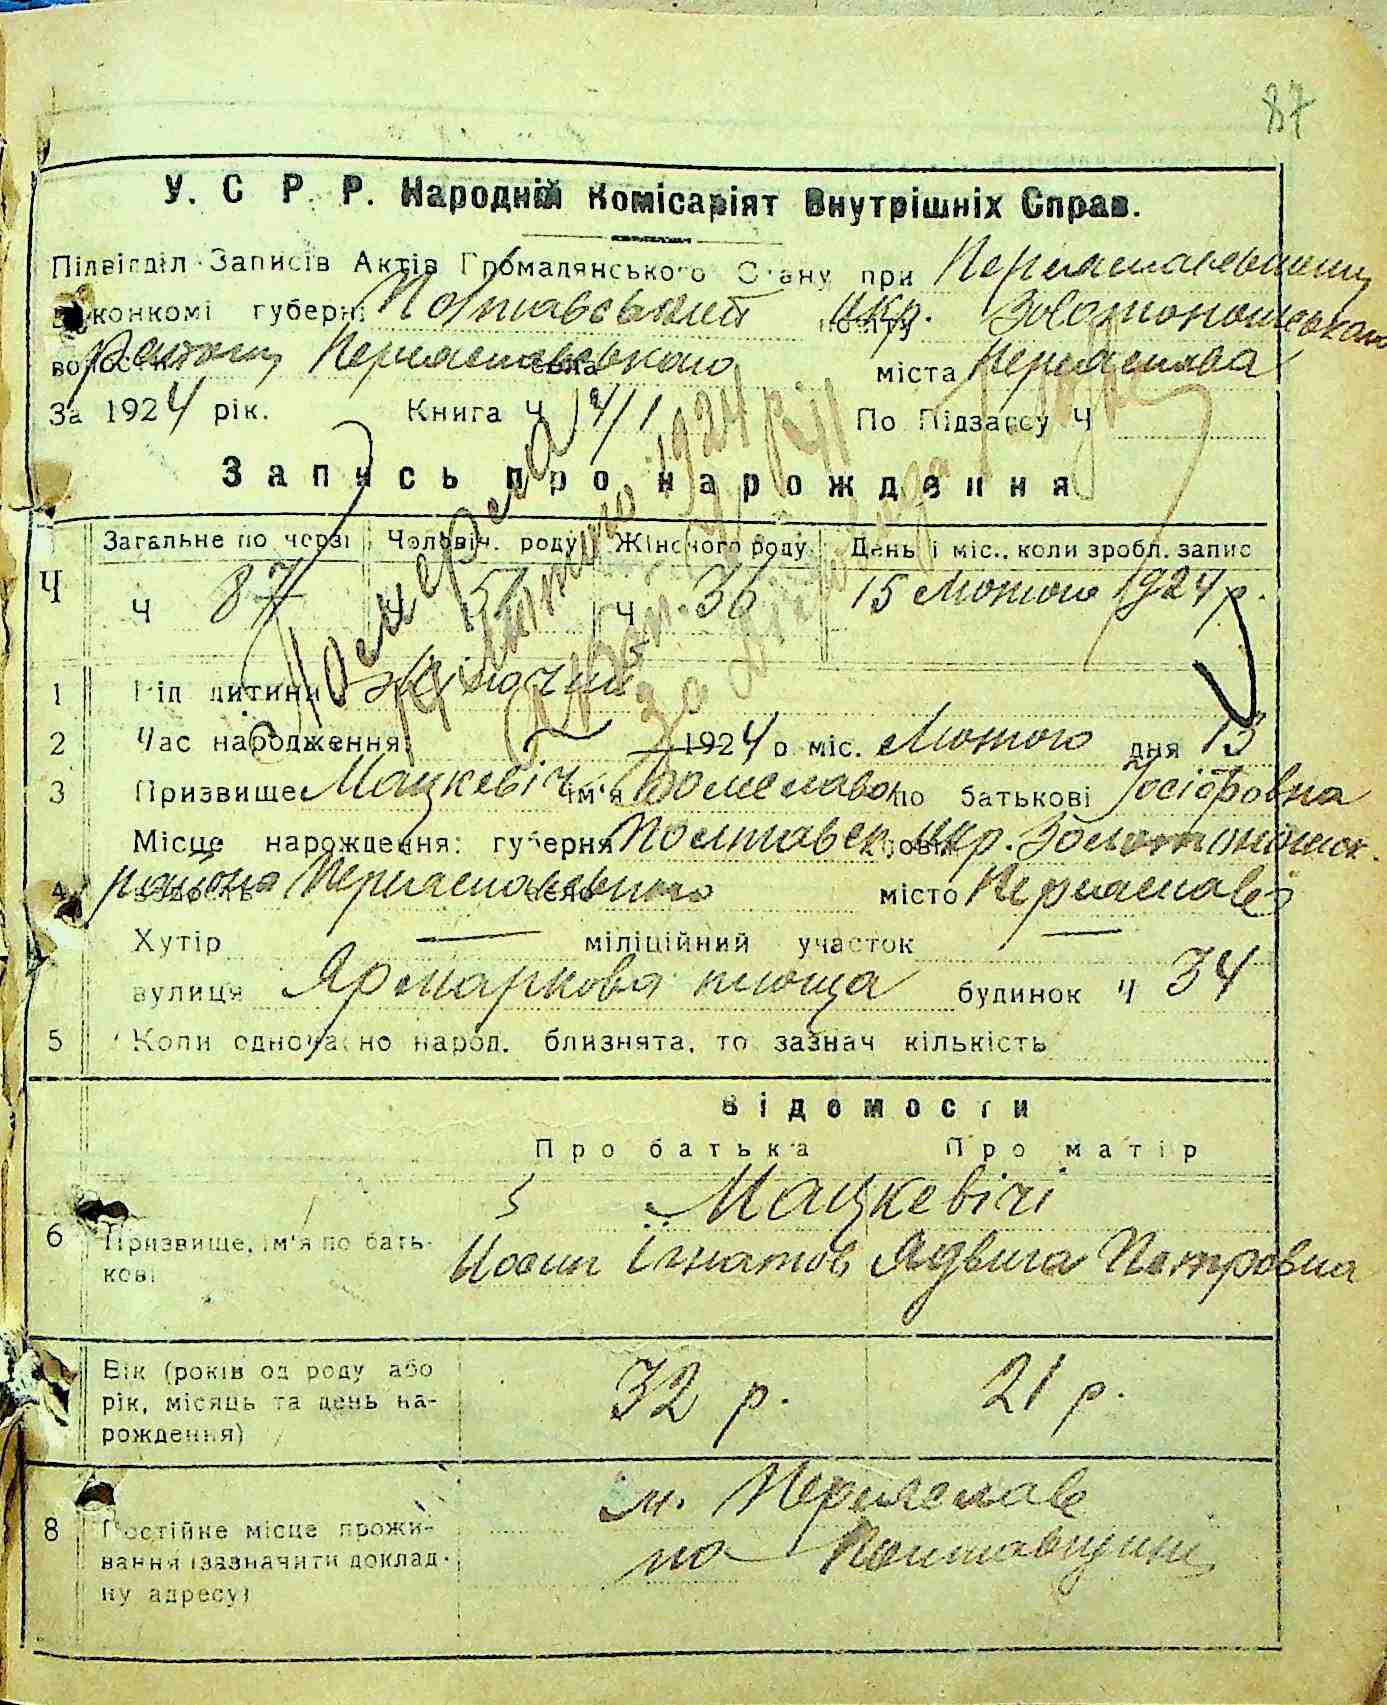 87
У. С Р. Р. Народній Комісаріят Внутрішніх Справ.
Підвідділ Записів Актів Громадянського Стану при Переяславському
конкомі губерні Полтавський повіту окр. Золотоношського
волости району Переяславського села міста Переяслава
За 1924 рік. Книга Ч 4/1 По Підзагсу Ч
Запись про нарождення
Загальне по черзі Чоловіч. роду Жіночого роду День і міс., коли зробл. запис
Ч Ч 87 Ч 51 Ч 36 15 Лютого 1924 р.
Померла
1924 р.
1 Рід дитини Жіночий
2 Час народження 1924 о міс. Лютого дня 13
3 Призвище Мацкевіч ім'я Бомеслава по батькові Іосіфовна
Місце нарождення: губерня Полтавськ. повіт окр. Золотоношськ.
4 волость района Переяславського село місто Переяслав
Хутір — міліційний участок —
вулиця Ярмаркова площа будинок Ч 34
5 Коли одночасно народ. близнята, то зазнач кількість
Відомости
Про батька Про матір
Мацкевічі
6 Призвище, ім'я по батькові Иосип Ігнатов Ядвига Петровна
Вік (років од роду або
рік, місяць та день на-
рождення) 32 р. 21 р.
м. Переяслав
8 Постійне місце прожи-
вання (зазначити доклад-
ну адресу) на Полтавщині